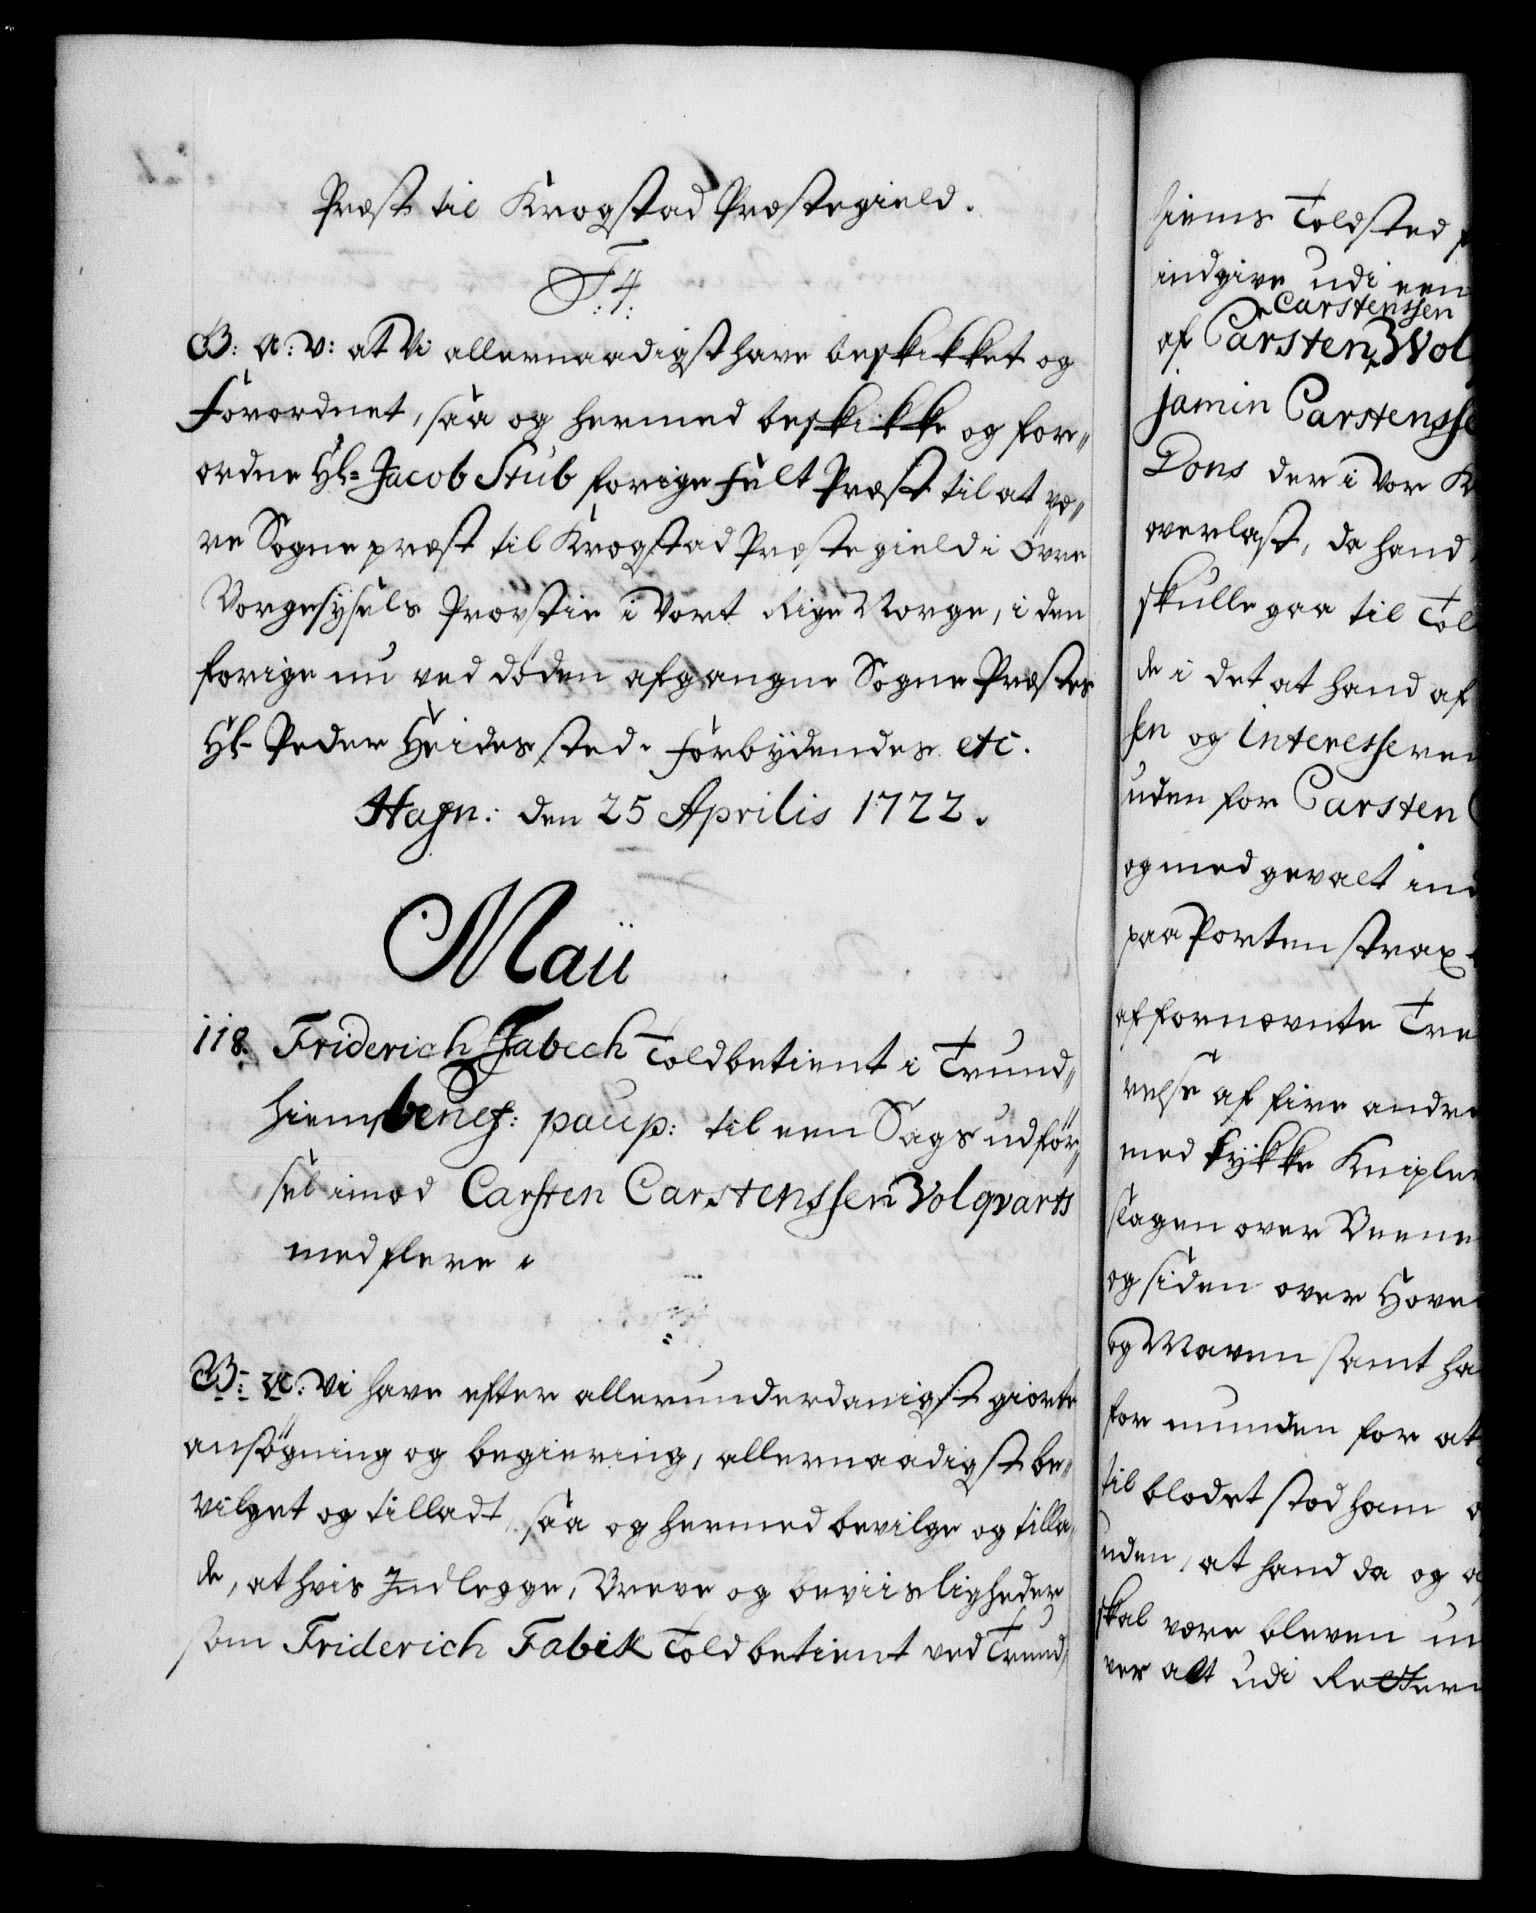 Præst til Krogstad Præstegield.
F: 4:
G: A: V: at Vi allernaadigst have beskikket og
forordnet, saa og hermed beskikke og for„
ordne Hr= Jacob Stub forige felt Præst til at væ„
re Sogne præst til Krogstad Præstegield i Øvre
Borgesysels Provstie i Vort Rige Norge, i den
forige nu ved døden afgangne Sogne Præstes
Hr- Peder Heidersted. forbydendes etc.
Hafn: den 25 Aprilis 1722.
Maii
118. Friderich Fabech Toldbetient i Trund„
hiems benef: paup: til een Sags udför„
sel imod Carsten Carstenssen Volqvarts
med flere
G: A: Vi have efter allerunderdanigst giorte
ansögning og begiering, allernaadigst be„
vilget og tilladt, saa og hermed bevilge og tilla„
de, at hvis Indlegge, Breve og beviisligheder
som Friderich Fabek Toldbetient ved Trund„
hiems Toldsted
indgive udi een
Carstenssen
af Carsten Vol
jamin Carstensse
Dons der i Vor K
overlast, da hand
skulle gaa til Tol
de i det at hand af
sen og Interessere
uden for Carsten
og med gevalt ind
paa Porten strax
af fornævnte Tre
relse af fire andre
med tykke Kniple
slagen over Beene
og siden over Hove
og Maven samt ha
for munden for at
til blodet stod ham
uden, at hand da og
skal være bleven
ver alt udi Retter